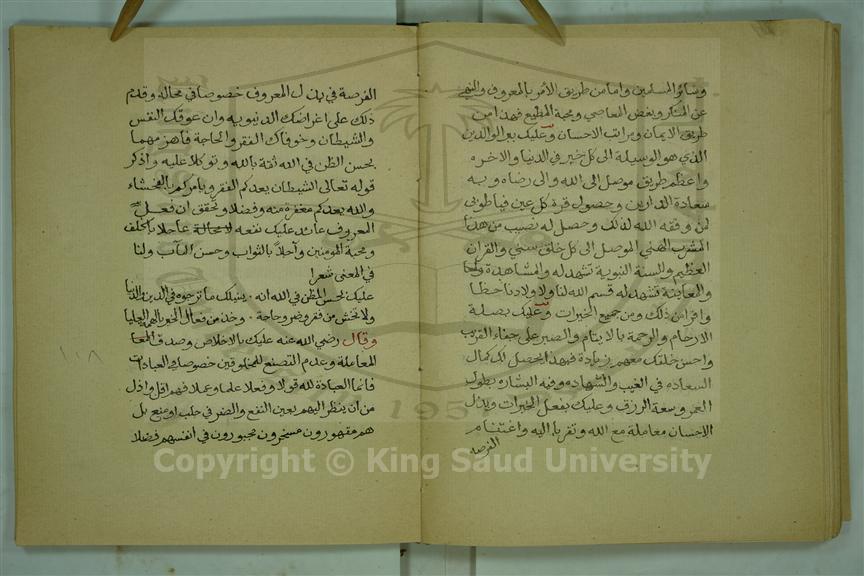 وسائر المسلمين واما من طريق الأمر بالمعروف والنهي
عن المنكر وبغض المعاصي ومحبة المطيع فهذا من
طريق الايمان ومراتب الاحسان وعليك ببر الوالدين
الذي هو الوسيلة الى كل خير في الدنيا والاخره
واعظم طريق موصل الى الله والى رضاه وبه
سعادة الدارين وحصول قرة كل عين فياطوبى
لمن وفقه الله لذلك وحصل له نصيب من هذا
المشرب الهني الموصل الى كل خلق سني والقران
العظيم والسنة النبوية تشهد له والمشاهدة
والمعاينة تشهد له قسم الله لنا ولاولادنا حظا
وافرا من ذلك ومن جميع الخيرات وعليك بصلة
الارحام والرحمة بالايتام والصبر على جفاء القريب
واحسن خلقك معهم زيادة فبهذا يحصل لك كمال
السعاده في الغيب والشهاده وفيه البشاره بطول
العمر وسعة الرزق وعليك بفعل الخيرات وبذل
الاحسان معاملة مع الله وتقربا اليه واغتنام
الفرصه
الفرصة في بذل المعروف خصوصا في محاله وقدم
ذلك على اغراضك الدنيويه وان عوقك النفس
والشيطان وخوفاك الفقر والحاجة فاهزمهما
بحسن الظن في الله ثقة بالله وتوكلا عليه واذكر
قوله تعالى الشيطان يعدكم الفقر ويامركم بالفحشاء
والله يعدكم مغفرة منه وفضلا وتحقق ان فعل
المعروف عائد عليك نفعه لا محالة عاجلا بالخلف
ومحبة المومنين وآجلا بالثواب وحسن المآب ولنا
في المعنى شعرا
عليك بحسن الظن في الله انه ينيلك ما ترجوه في الدين والدنيا
ولا تخش من فقر وضر وحاجة وخذ من فعال الخير الهمم العليا
وقال رضي الله عنه عليك بالاخلاص وصدق
المعاملة وعدم التصنع للمخلوقين خصوصا في العبادات
فانما العبادة لله قولا وفعلا علما وعملا فهم اقل واذل
من ان ينظر اليهم بعين النفع والضر في جلب او منع بل
هم مقهورون مسخرون مجبورون في انفسهم فضلا
١١٨
Copyright © King Saud University